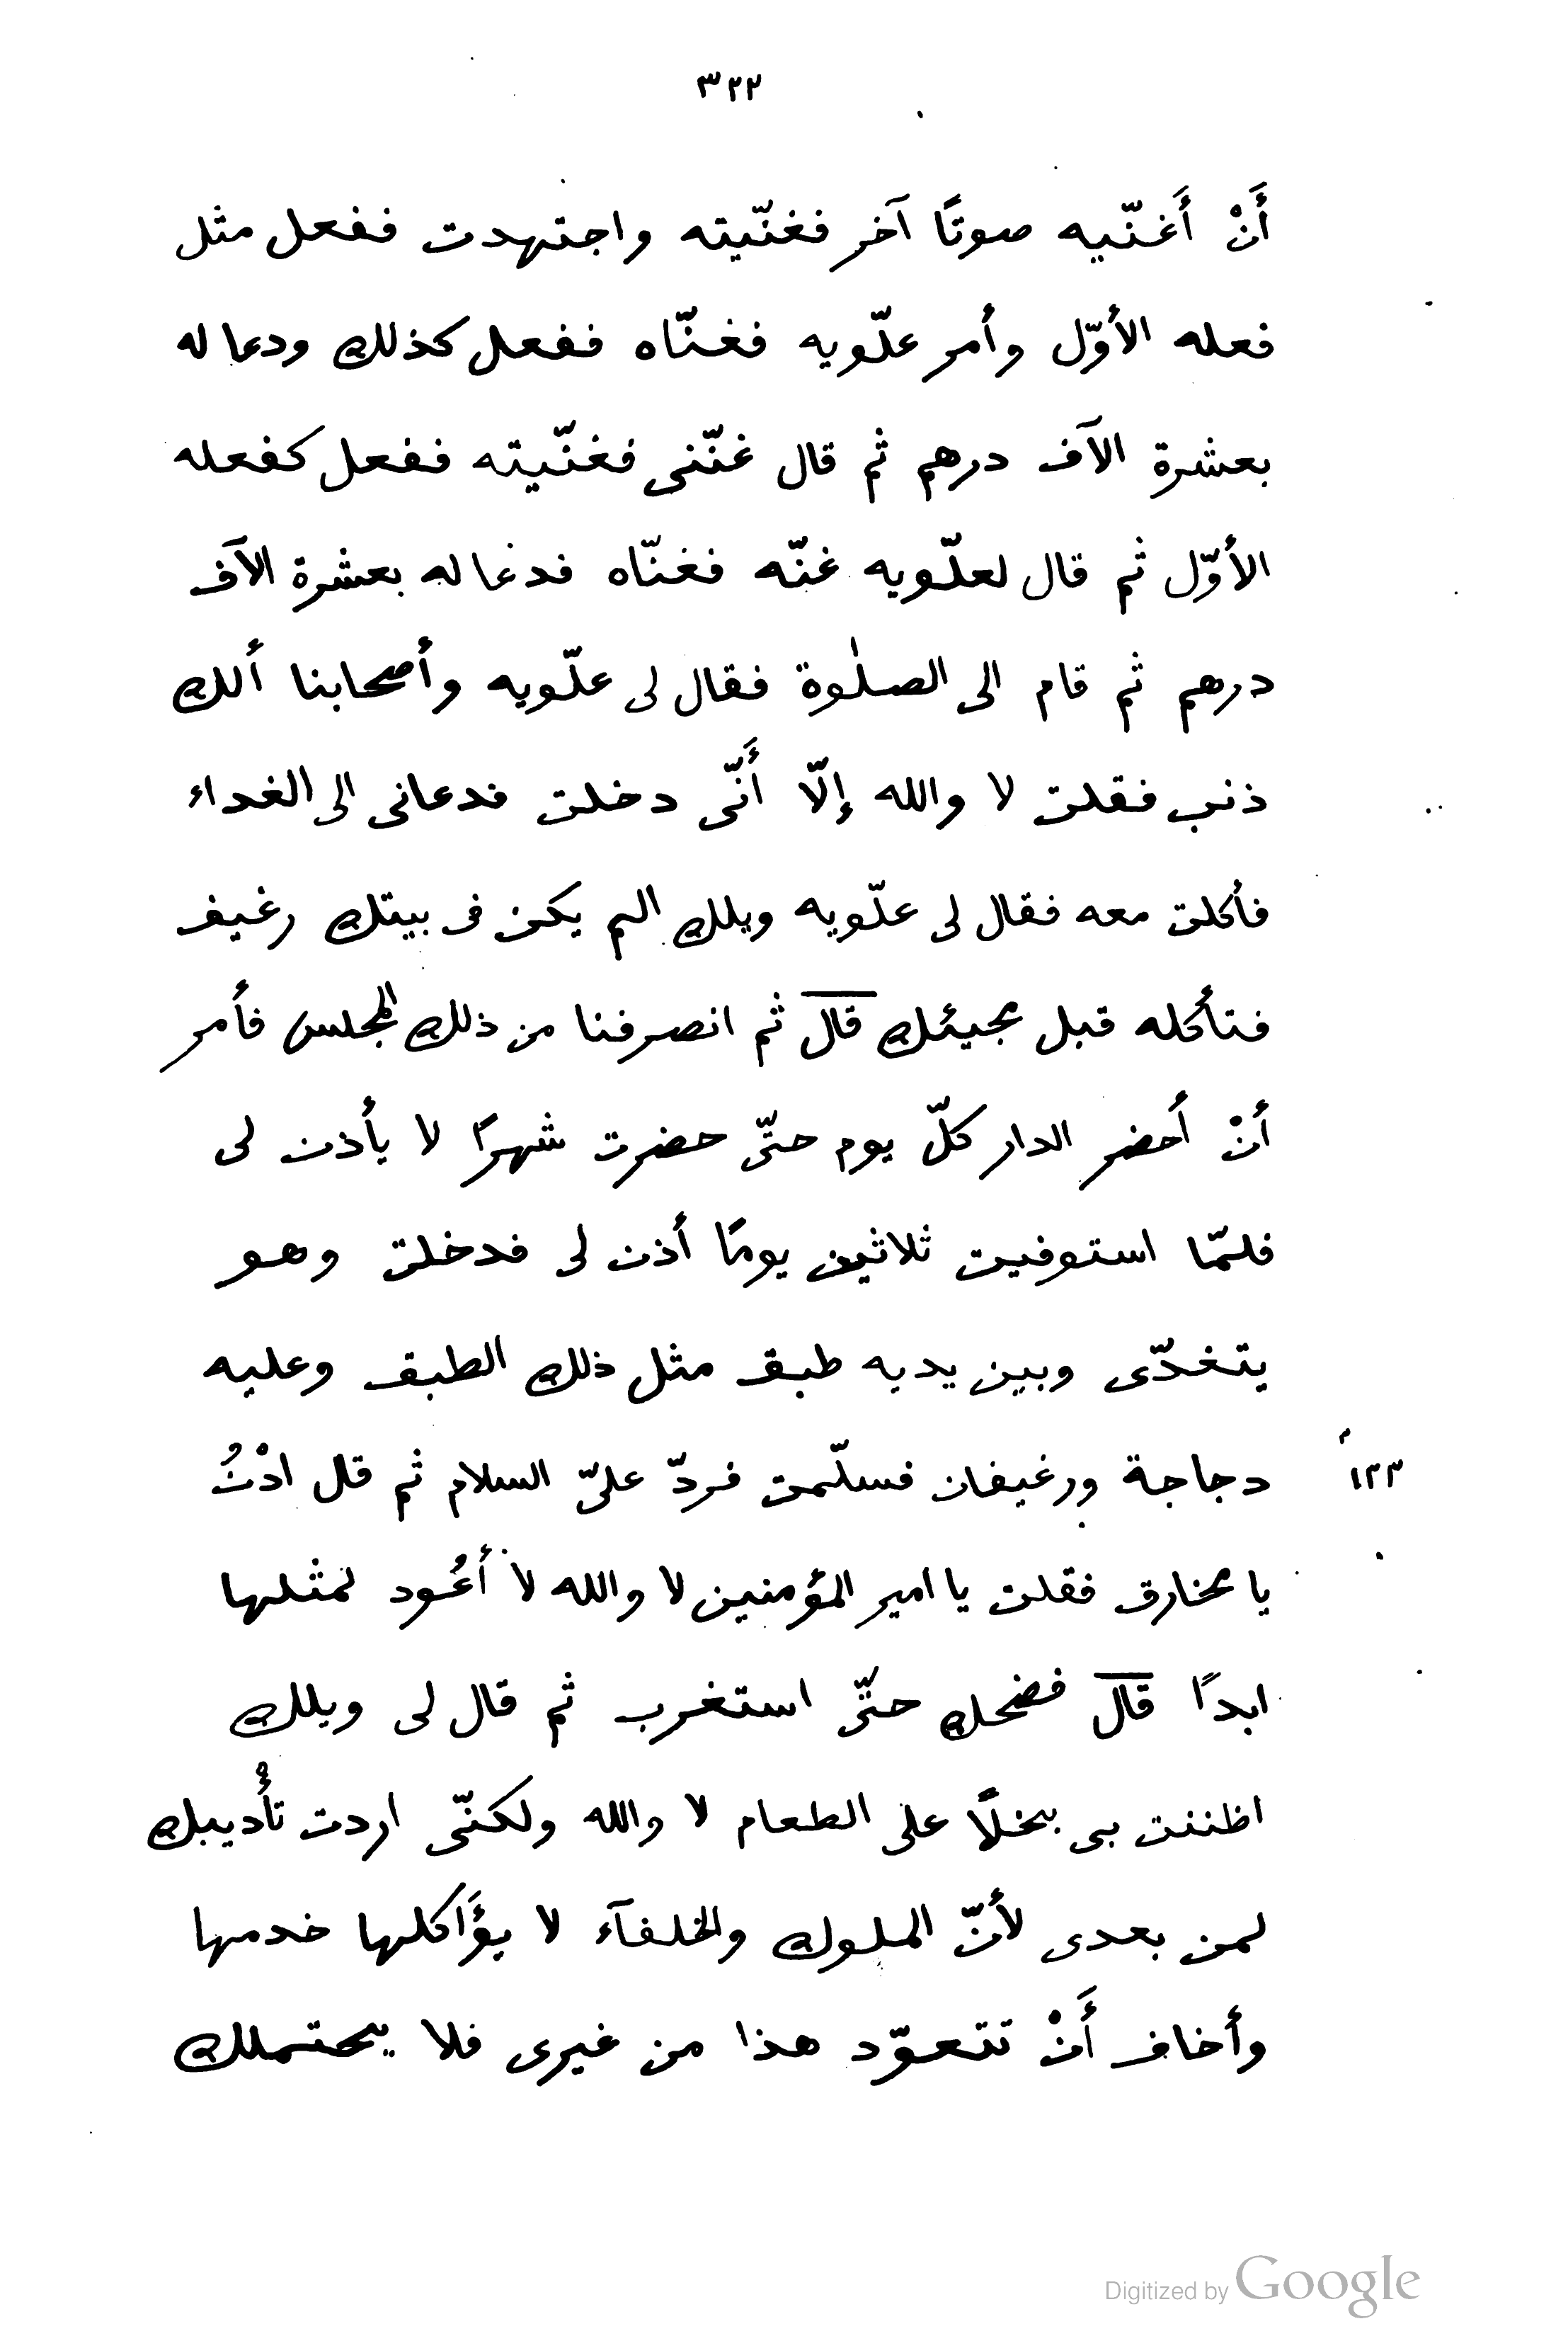 ٣٢٢
أَنْ أَغنّيه صوتًا آخر فغنّيته واجتهدت ففعل مثل
فعله الأوّل وأمر علّويه فغنّاه ففعل كذلك ودعا له
بعشرة الآف درهم ثم قال غنّنى فغنّيته ففعل كفعله
الأوّل ثم قال لعلّويه غنّه فغنّاه فدعا له بعشرة الآف
درهم ثم قام الى الصلٰوة فقال لى علّويه وأصحابنا ألك
ذنب فقلت لا والله إلّا أَنّى دخلت فدعانى الى الغداء
فأكلت معه فقال لى علّويه ويلك الم يكن فى بيتك رغيف
فتأكله قبل مجيئك قال ثم انصرفنا من ذلك المجلس فأمر
أنْ أحضر الدار كلّ يوم حتّى حضرت شهرًا لا يأذن لى
فلمّا استوفيت ثلاثين يومًا أذن لى فدخلت وهو
يتغدّى وبين يديه طبق مثل ذلك الطبق وعليه
دجاجة ورغيفان فسلّمت فردّ علىّ السلام ثم قال ادْنُ
١٢٣أ
يا مخارق فقلت يا امير المؤمنين لا والله لا أعُود لمثلها
ابدًا قال فضحك حتّى استغرب ثم قال لى ويلك
اظننت بى بخلًا على الطعام لا والله ولكنّى اردت تأْديبك
لمن بعدى لأنّ الملوك والخلفآء لا يؤَاكلها خدمها
وأخاف أَنْ تتعوّد هذا من غيرى فلا يحتملك
Digitized by Google